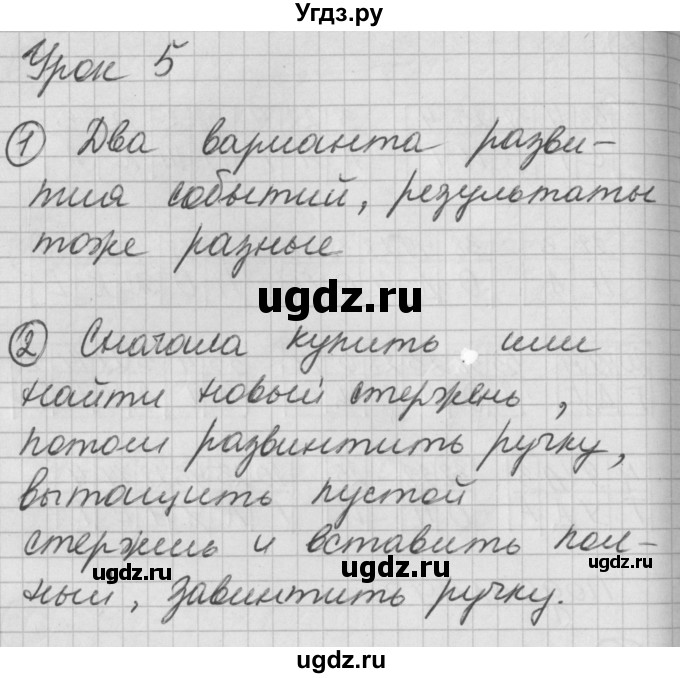 Угдз.ру
Урок 5
1 Два варианта разви-
тия событий, результаты
тоже разные
ugdz.ru
2 Сначала купить или
найти новый стержень,
потом развинтить ручку,
вытащить пустой
стержень и вставить пол-
ugdz.ru ugdz.ru ugdz.ru
ный, завинтить ручку.
ugdz.ru